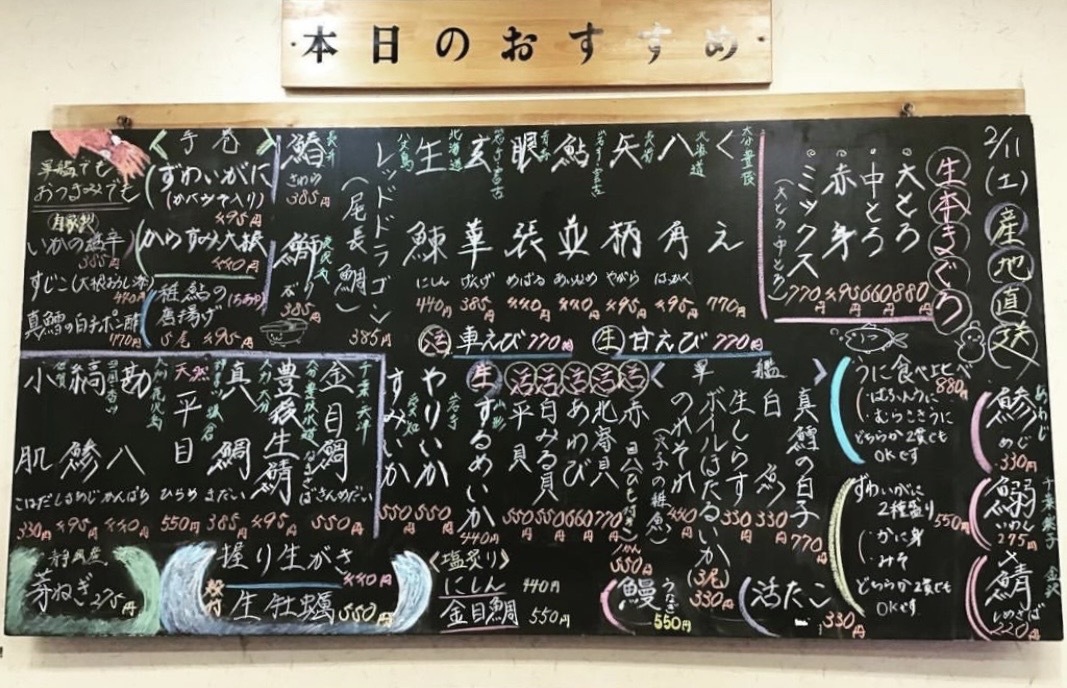 本日のおすすめ
2/11(土)
産地直送
生本まぐろ
・大とろ 880円
・中とろ 660円
・赤身 495円
・ミックス 770円
(大とろ中とろ)
大分豊後
くえ 770円
北海道
八角 はっかく 495円
長崎
矢柄 やがら 495円
岩手宮古
鮎並 あいなめ 440円
青森
眼張 めばる 440円
岩手宮古
玄華 げんげ 385円
北海道
生鰊 にしん 440円
八丈島
レッドドラゴン
(尾長鯛) 385円
長井
鰆 さわら 385円
鰤 ぶり 385円
手巻
ずわいがに
(かにみそ入り) 495円
からすみ大根 440円
稚鮎の(ちあゆ)
唐揚げ
5尾 495円
単品でも
おつまみでも
(自家製)
いかの塩辛 385円
すじこ(大根おろし添) 440円
真鱈の白子ポン酢 770円
活 車えび 770円
生 甘えび 770円
あじ
鯵 めじ 330円
千葉 銚子
鰯 いわし 275円
金沢
〆鯖 しめさば 220円
うに食べ比べ 880円
・ばふんうに
・むらさきうに
どちらか2貫でも
OKです
ずわいがに
2種盛り 550円
・かに身
・みそ
どちらか2貫でも
OKです
軍艦
真鱈の白子 770円
白魚 330円
生しらす 330円
ボイルほたるいか
(3尾) 330円
のれそれ 440円
(穴子の稚魚)
活 赤貝(ひも付き) 550円
活 北寄貝 770円
活 あわび 660円
活 白みる貝 550円
活 平貝 550円
生 するめいか 440円
岩手
やりいか 550円
愛知
すみいか 550円
千葉 天津
金目鯛 きんめだい 550円
大分 豊後水道
豊後生鯖
真鯛 まだい 385円
天然
平目 ひらめ 550円
勘八 かんぱち 440円
縞鯵 しまあじ 495円
佐賀
小肌 こはだ 330円
静岡産
芽ねぎ 275円
握り生がき 440円
殻付 生牡蠣 550円
〈塩炙り〉
にしん 440円
金目鯛 550円
鰻 うなぎ 550円
活たこ 330円